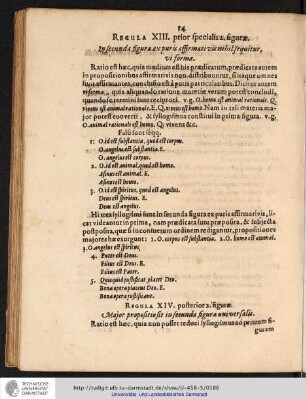 14
REGULA XIII. prior specialis 2. figuræ.
In secunda figura ex puris affirmativis nihil sequitur,
vi formæ.
Ratio est hæc, quia medium est bis prædicatum, prædicata autem
in propositionibus affirmativis non distribuuntur, si itaque omnes
sunt affirmantes, conclusio est à puris particularibus. Dicitur autem
vi formæ, quia aliquando ratione materiæ verum potest concludi,
quando sc. termini sunt reciproci. v. g. O. homo est animal rationale. Q.
vivens est animal rationale. E. Q. vivens est homo. Nam in tali materia major
potest converti, & syllogismus constitui in prima figura. v. g.
O. animal rationale est homo. Q. vivens &c.
Falsi sunt seqq.
1: O. id est substantia, quod est corpus.
O. angelus est substantia. E.
O. angelus est corpus.
2. O. id est animal, quod est homo.
Asinus est animal. E.
Asinus est homo.
3. O. id est spiritus, quod est angelus.
Deus est spiritus. E.
Deus est angelus.
Hi tres syllogismi sunt in secunda figura ex puris affirmativis, licet
videantur in prima, cum prædicata sunt præposita, & subjecta
postposita, quæ si in consuetum ordinem redigantur, propositiones
majores hæ exurgunt: 1. O. corpus est substantia. 2. O. homo est animal.
3. O. angelus est spiritus.
4. Pater est Deus.
Filius est Deus. E.
Filius est Pater.
5. Quicquid justificat, placet Deo.
Bona opera placent Deo. E.
Bona opera justificant.
REGULA XIV. posterior 2. figuræ.
Major propositio sit in secunda figura universalis.
Ratio est hæc, quia non posset reduci syllogismus ad primam fi-
guram
TECHNISCHE UNIVERSITÄT DARMSTADT
http://tudigit.ulb.tu-darmstadt.de/show/U-458-5/0186
Universitäts- und Landesbibliothek Darmstadt